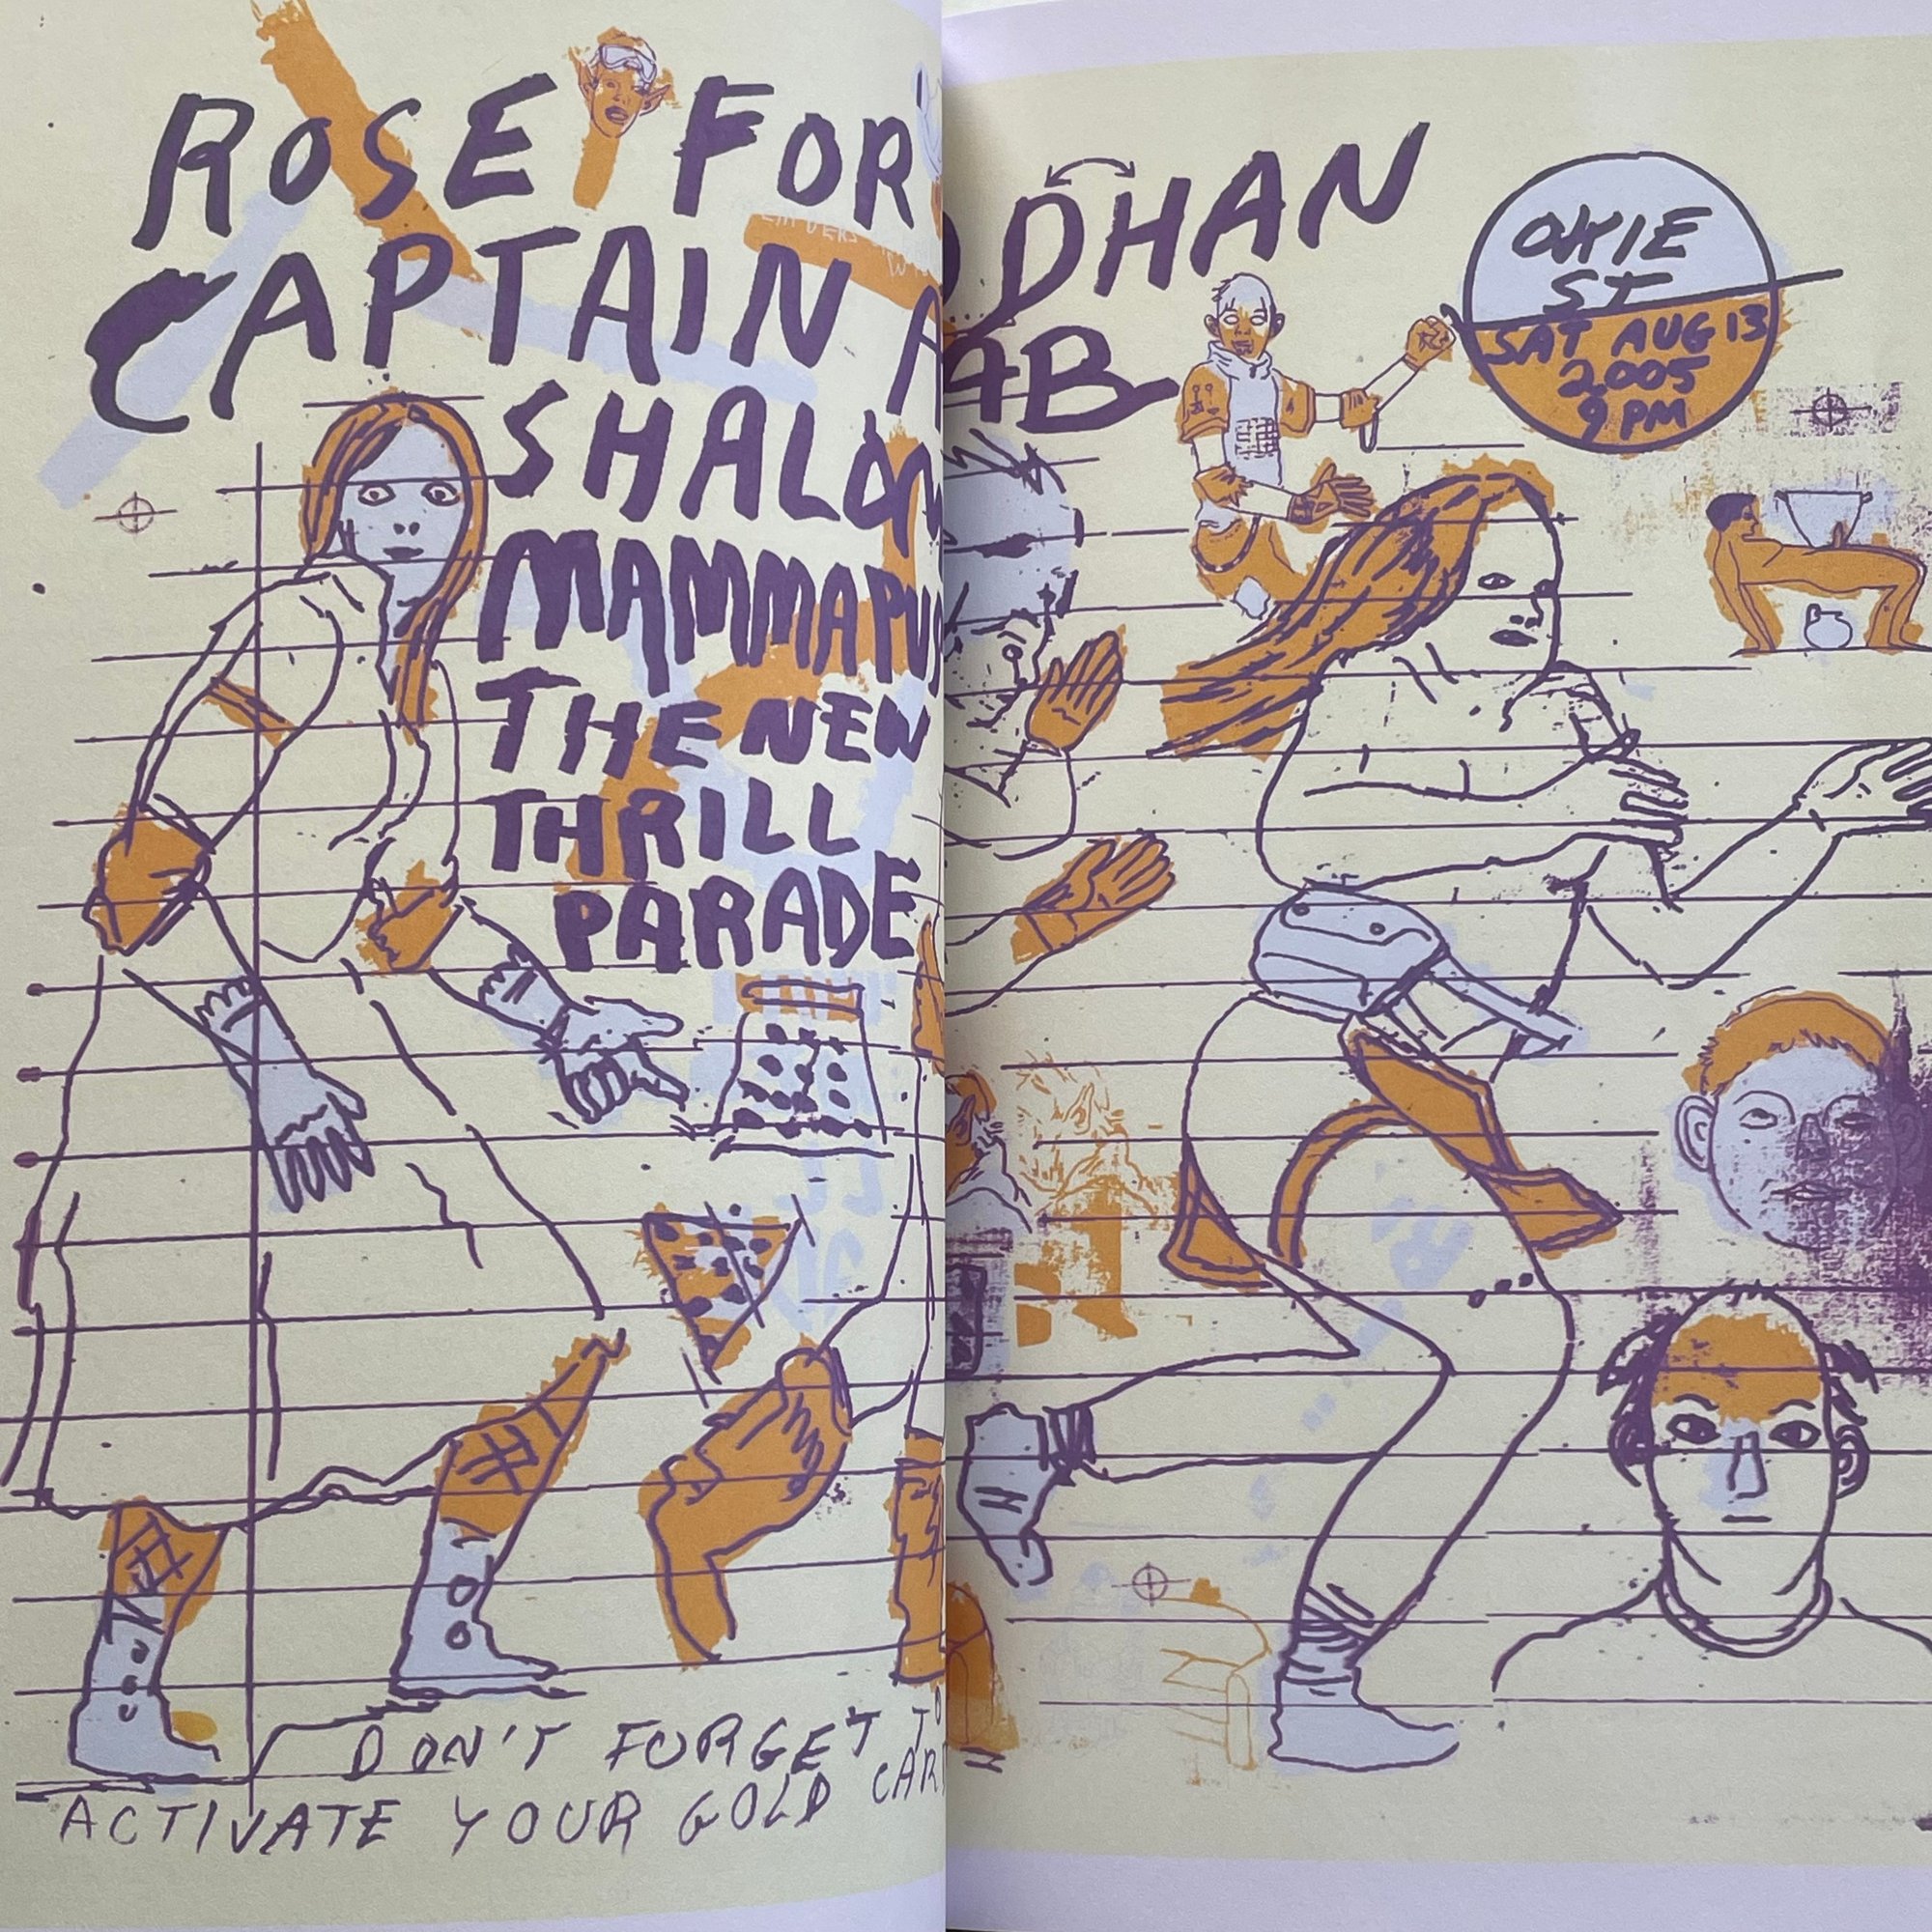 ROSE FOR
CAPTAIN A
SHALOM
MAMMAPU
THE NEW
THRILL
PARADE
DHAN
AB
OKIE
ST
SAT AUG 13
2005
9 PM
DON'T FORGET TO
ACTIVATE YOUR GOLD CAR